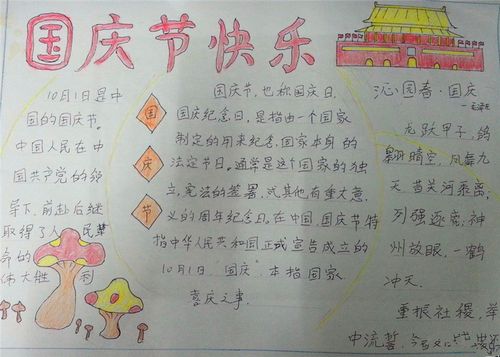 国庆节快乐
10月1日是中
国的国庆节。
中国人民在中
国共产党的领
导下,前赴后继
取得了人民革
命的
伟大胜利
国
庆
节
国庆节,也称国庆日,
国庆纪念日,是指由一个国家
制定的用来纪念国家本身的
法定节日。通常是这个国家的独
立、宪法的签署,或其他有重大意
义的周年纪念日。在中国,国庆节特
指中华人民共和国正式宣告成立的
10月1日。国庆,本指国家
喜庆之事。
沁园春·国庆
龙跃甲子,鸽
翱晴空,凤舞九
天。昔关河黍离,
列强逐鹿;神
州放眼,一鹤
冲天。
重振社稷,举
中流誓,